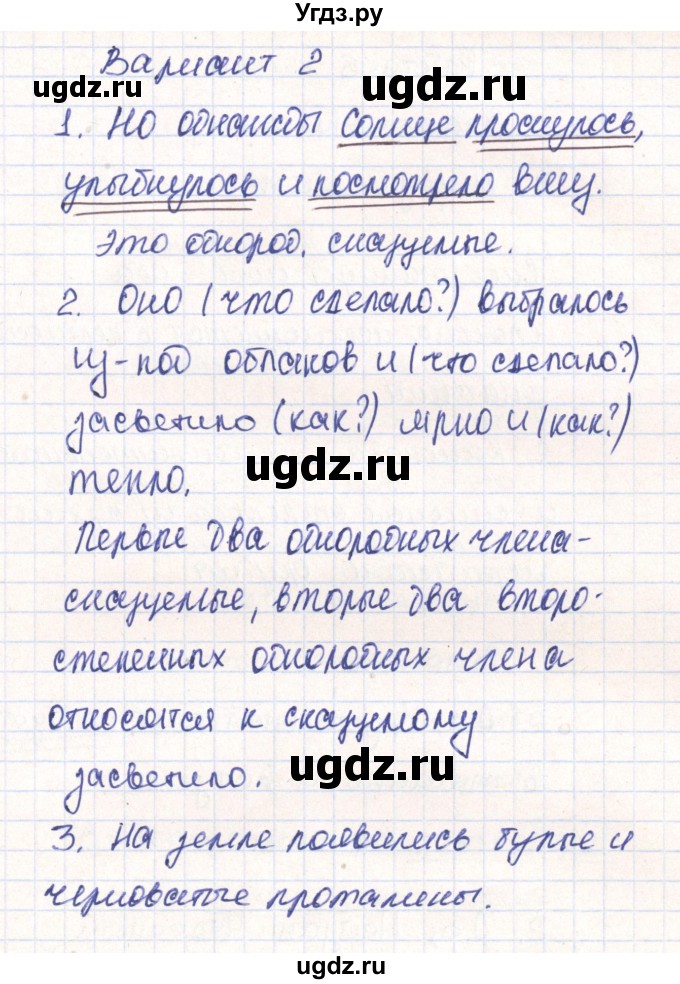 Угдз.ру
Вариант 2
ugdz.ru ugdz.ru
1. Но однажды Солнце проснулось,
улыбнулось и посмотрело вниз.
Это однород. сказуемые.
2. Оно (что сделало?) выбралось
из-под облаков и (что сделало?)
засветило (как?) ярко и (как?)
тепло.
ugdz.ru
Первые два однородных члена-
сказуемые, вторые два второ-
степенных однородных члена
относятся к сказуемому
засветило.
ugdz.ru
3. На земле появились бурые и
черноватые проталины.
ugdz.ru